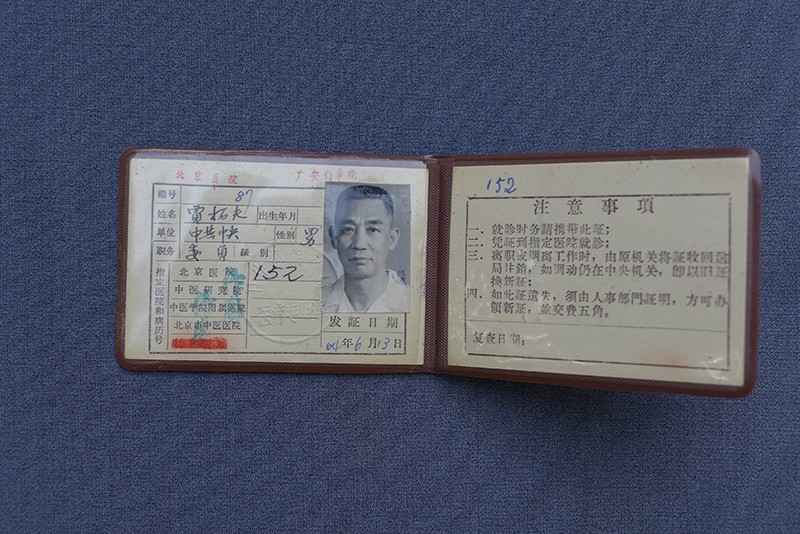 北京医院 广安门医院
编号 87
姓名 贾拓夫 出生年月
单位 中共中央 性别 男
职务 委员 级别
指定医院和病历号
北京医院 152
中医研究院
中医学院附属医院
北京市中医医院
发证日期
64年6月13日
152
注意事项
一．就診时务請携帶此証；
二．凭証到指定医院就診；
三．离职或調离工作时，由原机关将証收回敝
局註銷，如調动仍在中央机关，卽以旧証
換新証；
四．如此証遺失，須由人事部門証明，方可办
領新証，並交費五角。
复查日期：